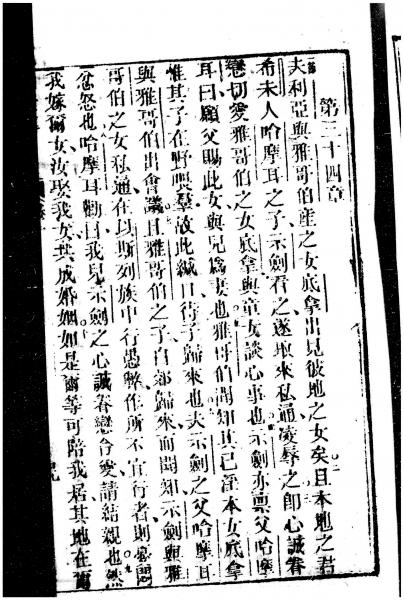 第三十四章
夫利亞與雅哥伯產之女底拿出見彼地之女矣且本地之君
希未人哈摩耳之子示劍看之遂取來私通凌辱之卽心誠眷
戀切愛雅哥伯之女底拿與童女談心事也示劍亦稟父哈摩
耳曰願父賜此女與兒爲妻也雅哥伯聞知其已淫本女底拿
惟其子在野喂羣故此緘口待子歸來也夫示劍之父哈摩耳
與雅哥伯出會議且雅哥伯之子自郊歸來而聞知示劍與雅
哥伯之女私通在以斯列族中行愚弊作所不宜行者則憂悶
忿怒也哈摩耳勸曰我兒示劍之心誠眷戀令愛請結親也然
我嫁爾女汝娶我女共成婚姻如是爾等可陪我居其地在爾